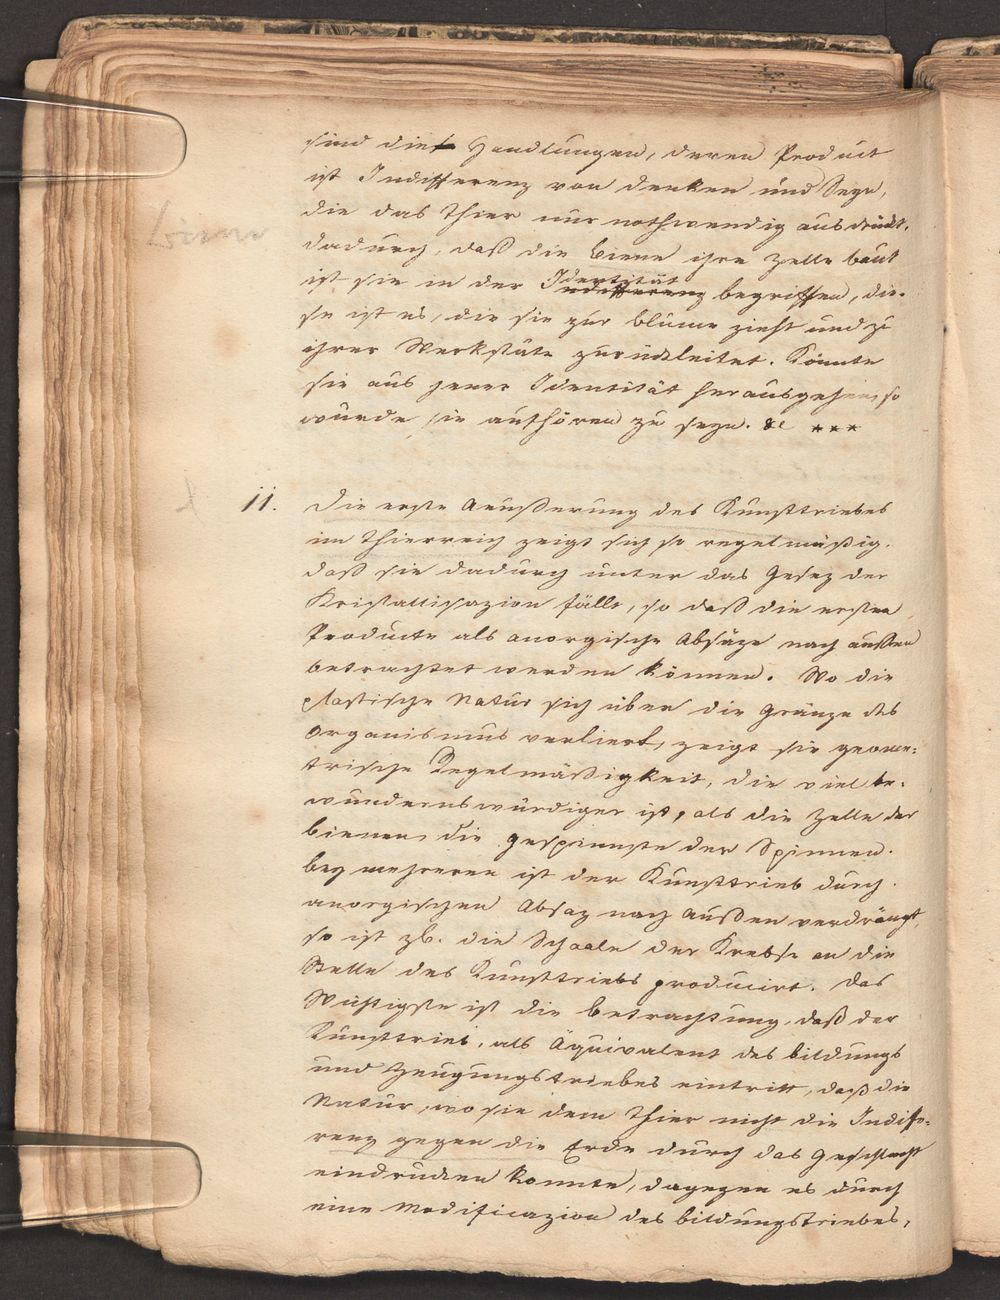 sind die Handlungen, deren Product
ist Indifferenz von denken und Seyn,
die das Thier nur nothwendig ausdrückt.
Biene
dadurch, daß die Biene ihre Zelle baut
ist sie in der Identität begriffen, die-
se ist es, die sie zur Blume zieht und zu
ihrer Werkstäte zurückleitet. Könnte
sie aus jener Identität herausgehen, so
wurde sie aufhören zu seyn. &c ***
11. Die erste Aeußerung des Kunsttriebes
im Thierreich zeigt sich so regelmäßig.
daß sie dadurch unter das Gesez der
Kristallisazion fällt, so daß die ersten
Producte als anorgische Absäze nach außen
betrachtet werden können. Wo die
plastische Natur sich über die Gränze des
Organismus verliert, zeigt sie geome:
trische Regelmäßigkeit, die viel be-
wundernswürdiger ist, als die Zelle der
bienen, die gespinnste der Spinnen.
bey mehreren ist der Kunsttrieb durch
anorgischen Absaz nach Außen verdrängt,
so ist zb. die Schaale der Krebse an die
Stelle des Kunsttriebs producirt. Das
Wichtigste ist die betrachtung, daß der
Kunsttrieb, als Äquivalent des bildungs
und Zeugungstriebes eintritt, daß die
Natur, wo sie dem Thier nicht die Indiffe-
renz gegen die Erde durch das Geschlecht
eindrucken konnte, dagegen es durch
eine Modificazion des bildungstriebes,